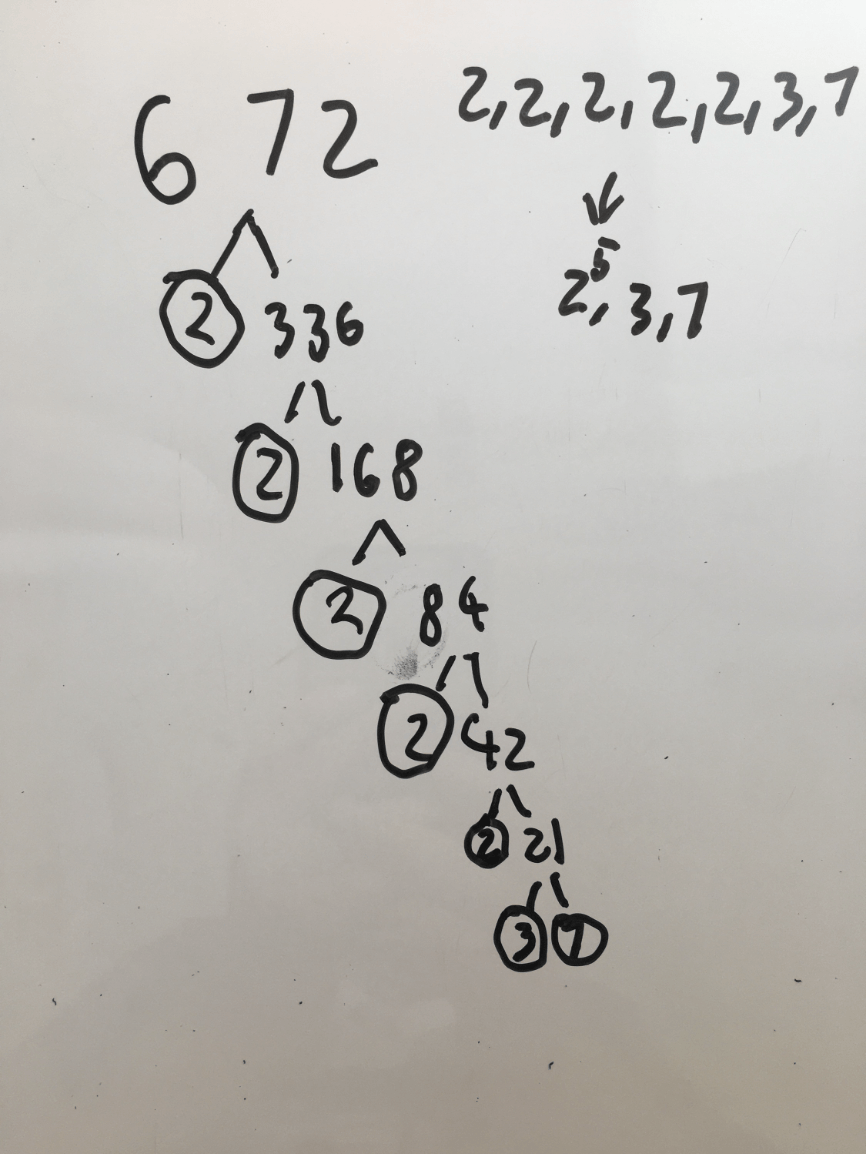 672
2 336
2 168
2 84
2 42
2 21
3 7
2,2,2,2,2,3,7
2⁵,3,7